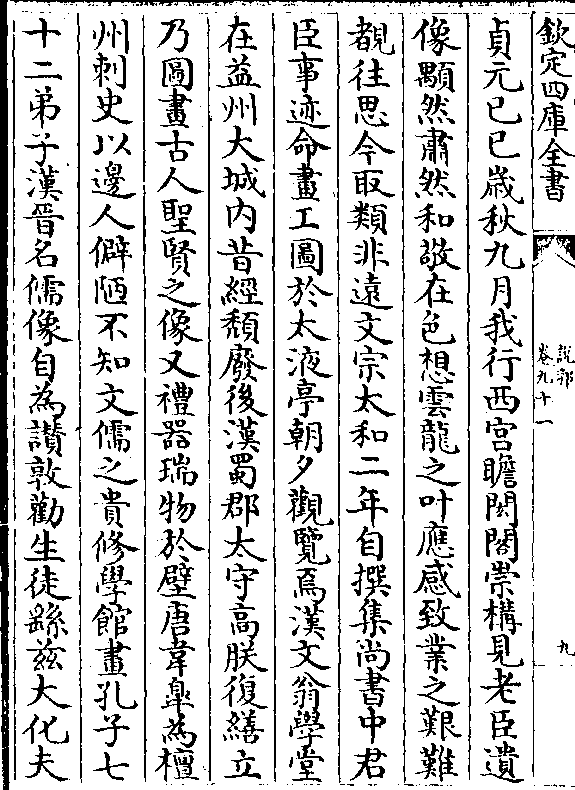 欽定四庫全書
說郛
卷九十一
九
貞元己巳歲秋九月我行西宮瞻閎閣崇構見老臣遺
像顒然肅然和敬在色想雲龍之叶應感致業之艱難
覩往思今取類非遠文宗太和二年自撰集尚書中君
臣事迹命畫工圖於太液亭朝夕觀覽焉漢文翁學堂
在益州大城内昔經頽廢後漢蜀郡太守高朕復繕立
乃圖畫古人聖賢之像又禮器瑞物於壁唐韋臯為檀
州刺史以邊人僻陋不知文儒之貴修學館畫孔子七
十二弟子漢晉名儒像自為讃敦勸生徒繇兹大化夫